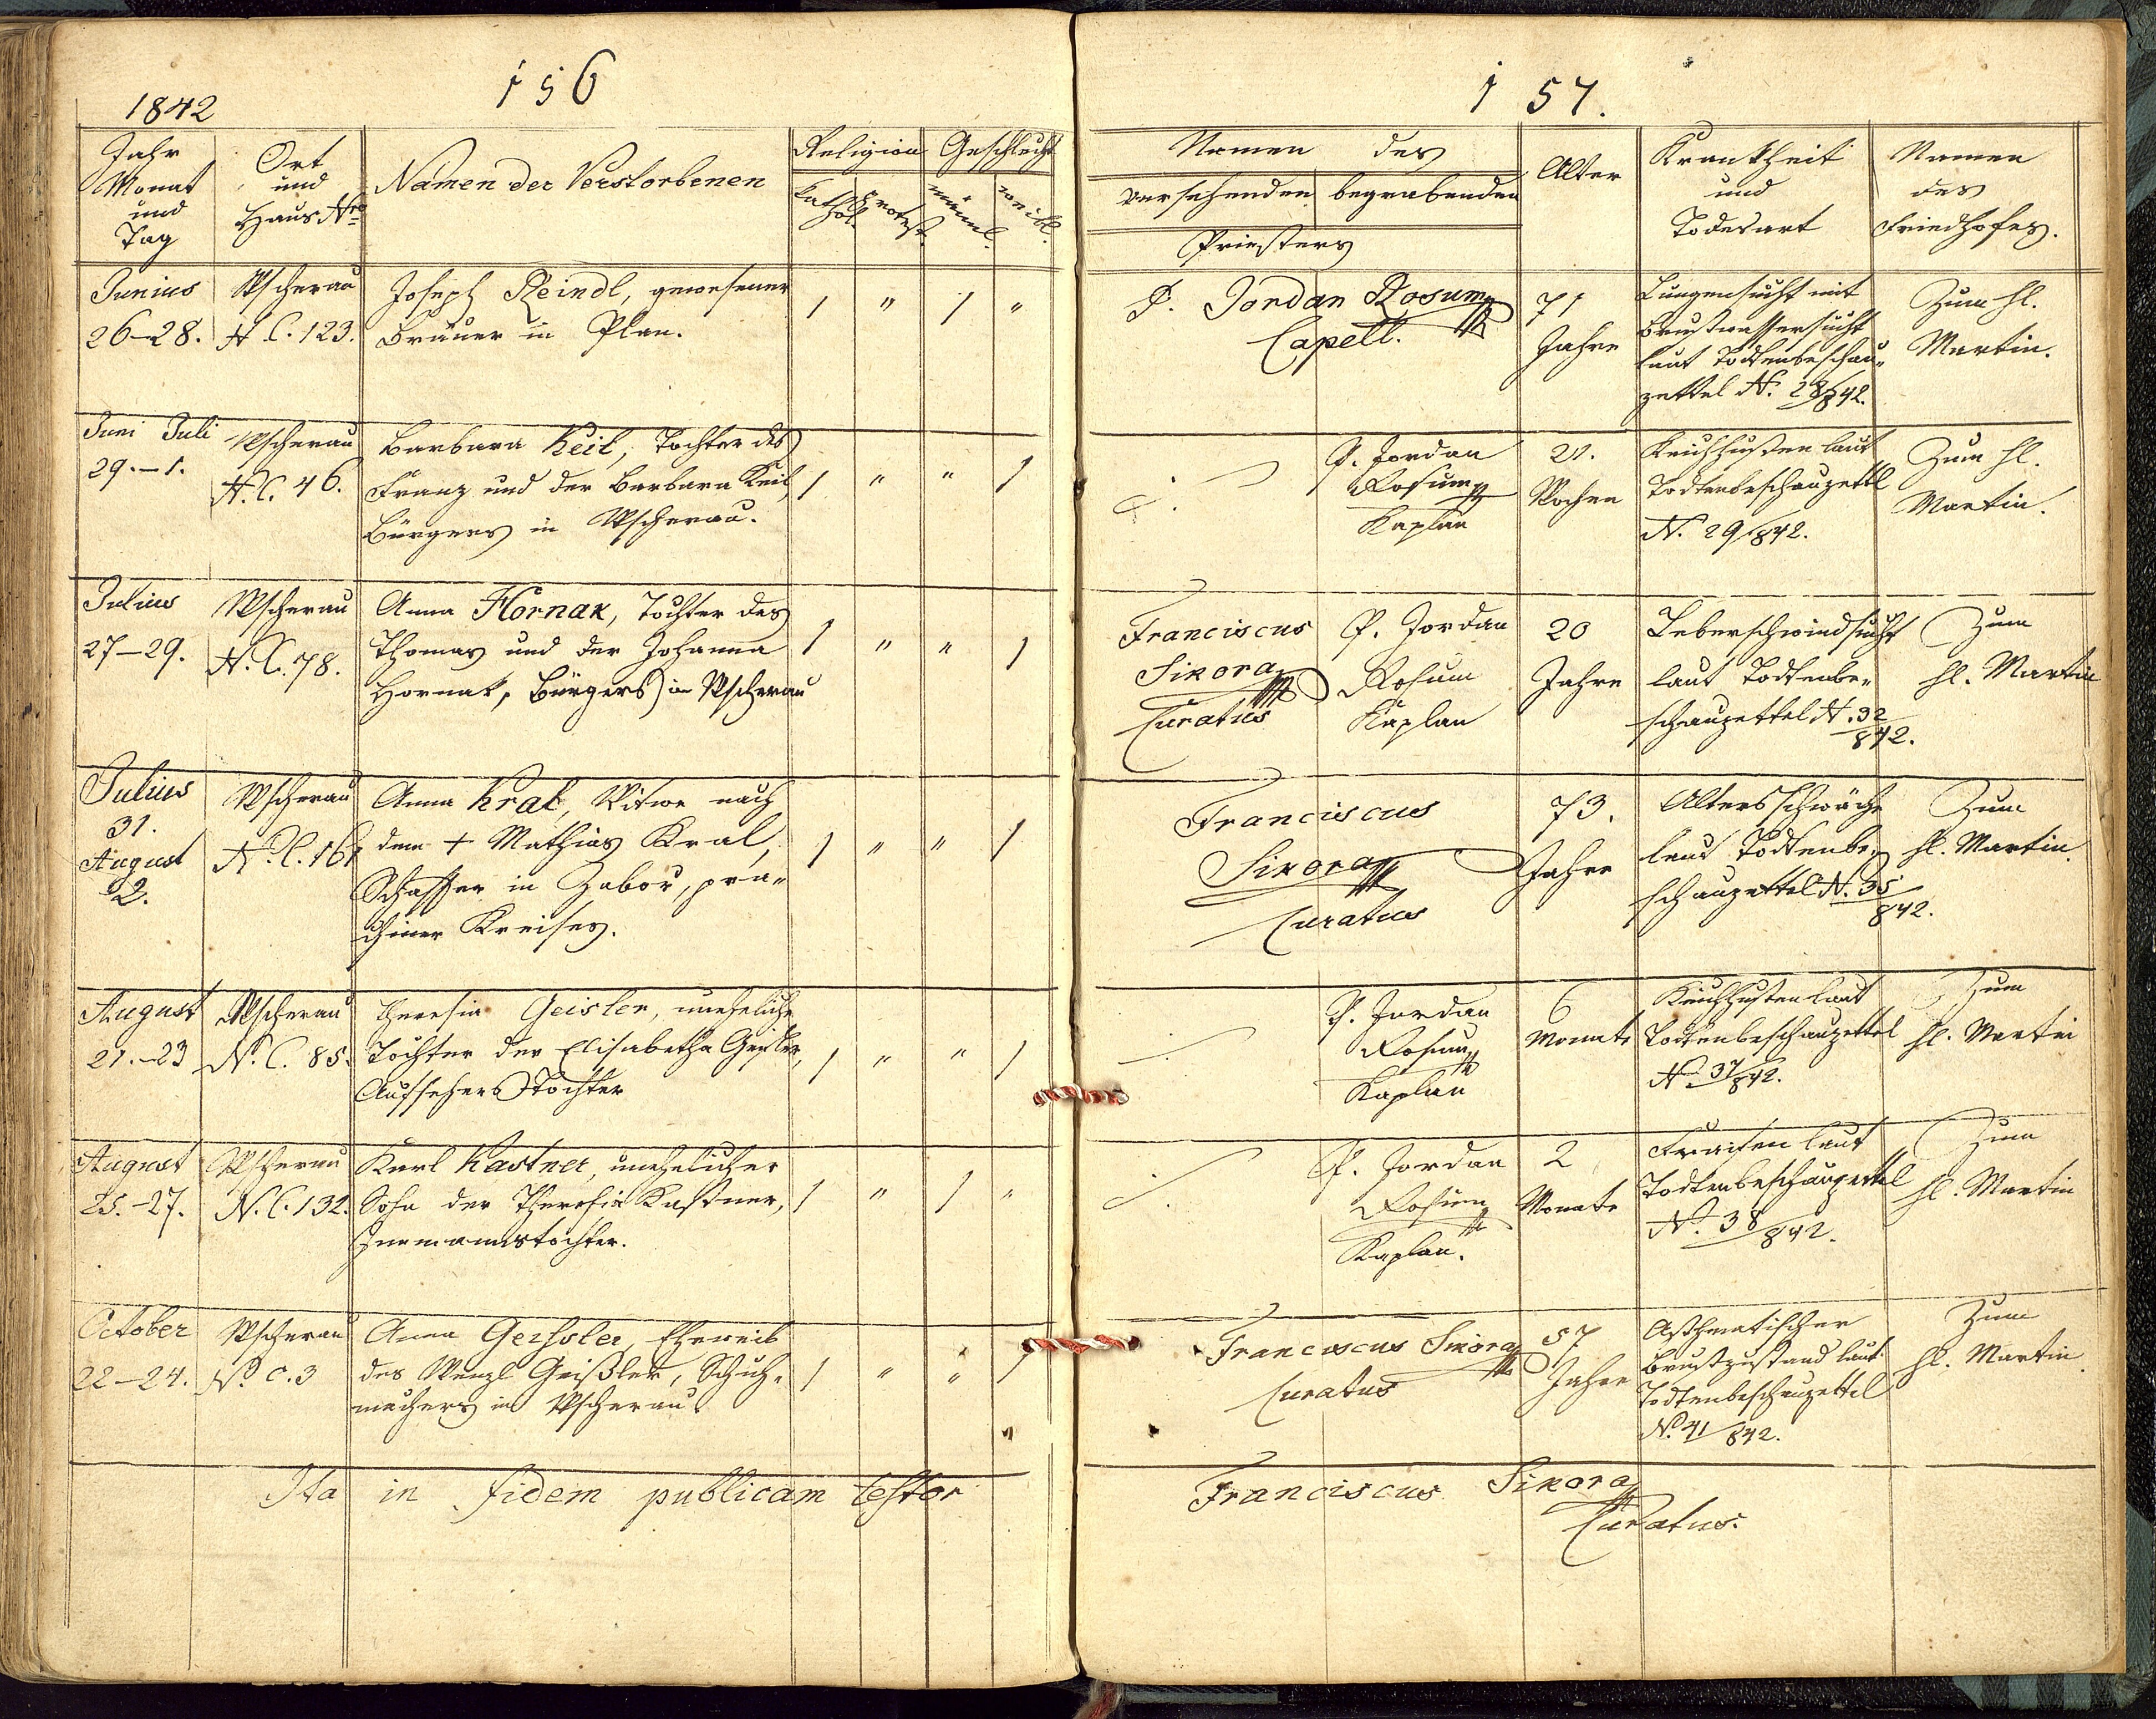 156
1842
Jahr
Monat
und
Tag
Ort
und
Haus Nro
Namen der Verstorbenen
Religion
Kathol.
Protest.
Geschlecht
männl.
weibl.
Junius
26-28.
Wscherau
N C. 123.
Joseph Reindl, gewesener
Bräuer in Plan.
1 " 1 "
Juni Juli
29.-1.
Wscherau
N. C. 46.
Barbara Keil, Tochter des
Franz und der Barbara Keil,
Bürgers in Wscherau.
1 " " 1
Julius
27-29.
Wscherau
N. C. 78.
Anna Hornak, Tochter des
Thomas und der Johanna
Hornak, Bürgers in Wscherau
1 " " 1
Julius
31.
August
2.
Wscherau
N. C. 161
Anna Kral, Witwe nach
dem + Mathias Kral,
Schaffer in Zabor, pra-
chiner Kreises.
1 " " 1
August
21.-23
Wscherau
N. C. 85.
Theresia Geisler, uneheliche
Tochter der Elisabetha Geisler,
Aufsehers Tochter
1 " " 1
August
25.-27.
Wscherau
N. C. 132.
Karl Kastner, unehelicher
Sohn der Theresia Kastner,
Inmannstochter.
1 " 1 "
October
22-24.
Wscherau
No. C. 3
Anna Geissler, Eheweib
des Wenzl Geißler, Schuh-
machers in Wscherau.
1 " " 1
Ita in fidem publicam testor
157.
Namen des
versehenden
begrabenden
Priesters
Alter
Krankheit
und
Todesart
Namen
des
Friedhofes.
P. Jordan Rosum
Capell.
71
Jahre
Lungensucht mit
Brustwassersucht
laut Todtenbeschau-
zettel N. 28/842.
Zum hl.
Martin.
P. Jordan
Rosum
Kaplan
21.
Wochen
Keichhusten laut
Todtenbeschauzettl
N. 29/842.
Zum hl.
Martin.
Franciscus
Sikora
Curatus
P. Jordan
Rosum
Kaplan
20
Jahre
Leberschwindsucht
laut Todtenbe-
schauzettel N. 32/842.
Zum
hl. Martin
Franciscus
Sikora
Curatus
73.
Jahre
Altersschwäche
laut Todtenbe-
schauzettel N. 35/842.
Zum
hl. Martin.
P. Jordan
Rosum
Kaplan
6
Monate
Keichhusten laut
Todtenbeschauzettel
No 37/842.
Zum
hl. Martin
P. Jordan
Rosum
Kaplan.
2
Monate
Fraisen laut
Todtenbeschauzettel
No. 38/842.
Zum
hl. Martin
Franciscus Sikora
Curatus
57
Jahre
Asthmatischer
Brustzustand laut
Todtenbeschauzettel
No. 41/842.
Zum
hl. Martin.
Franciscus Sikora
Curatus.